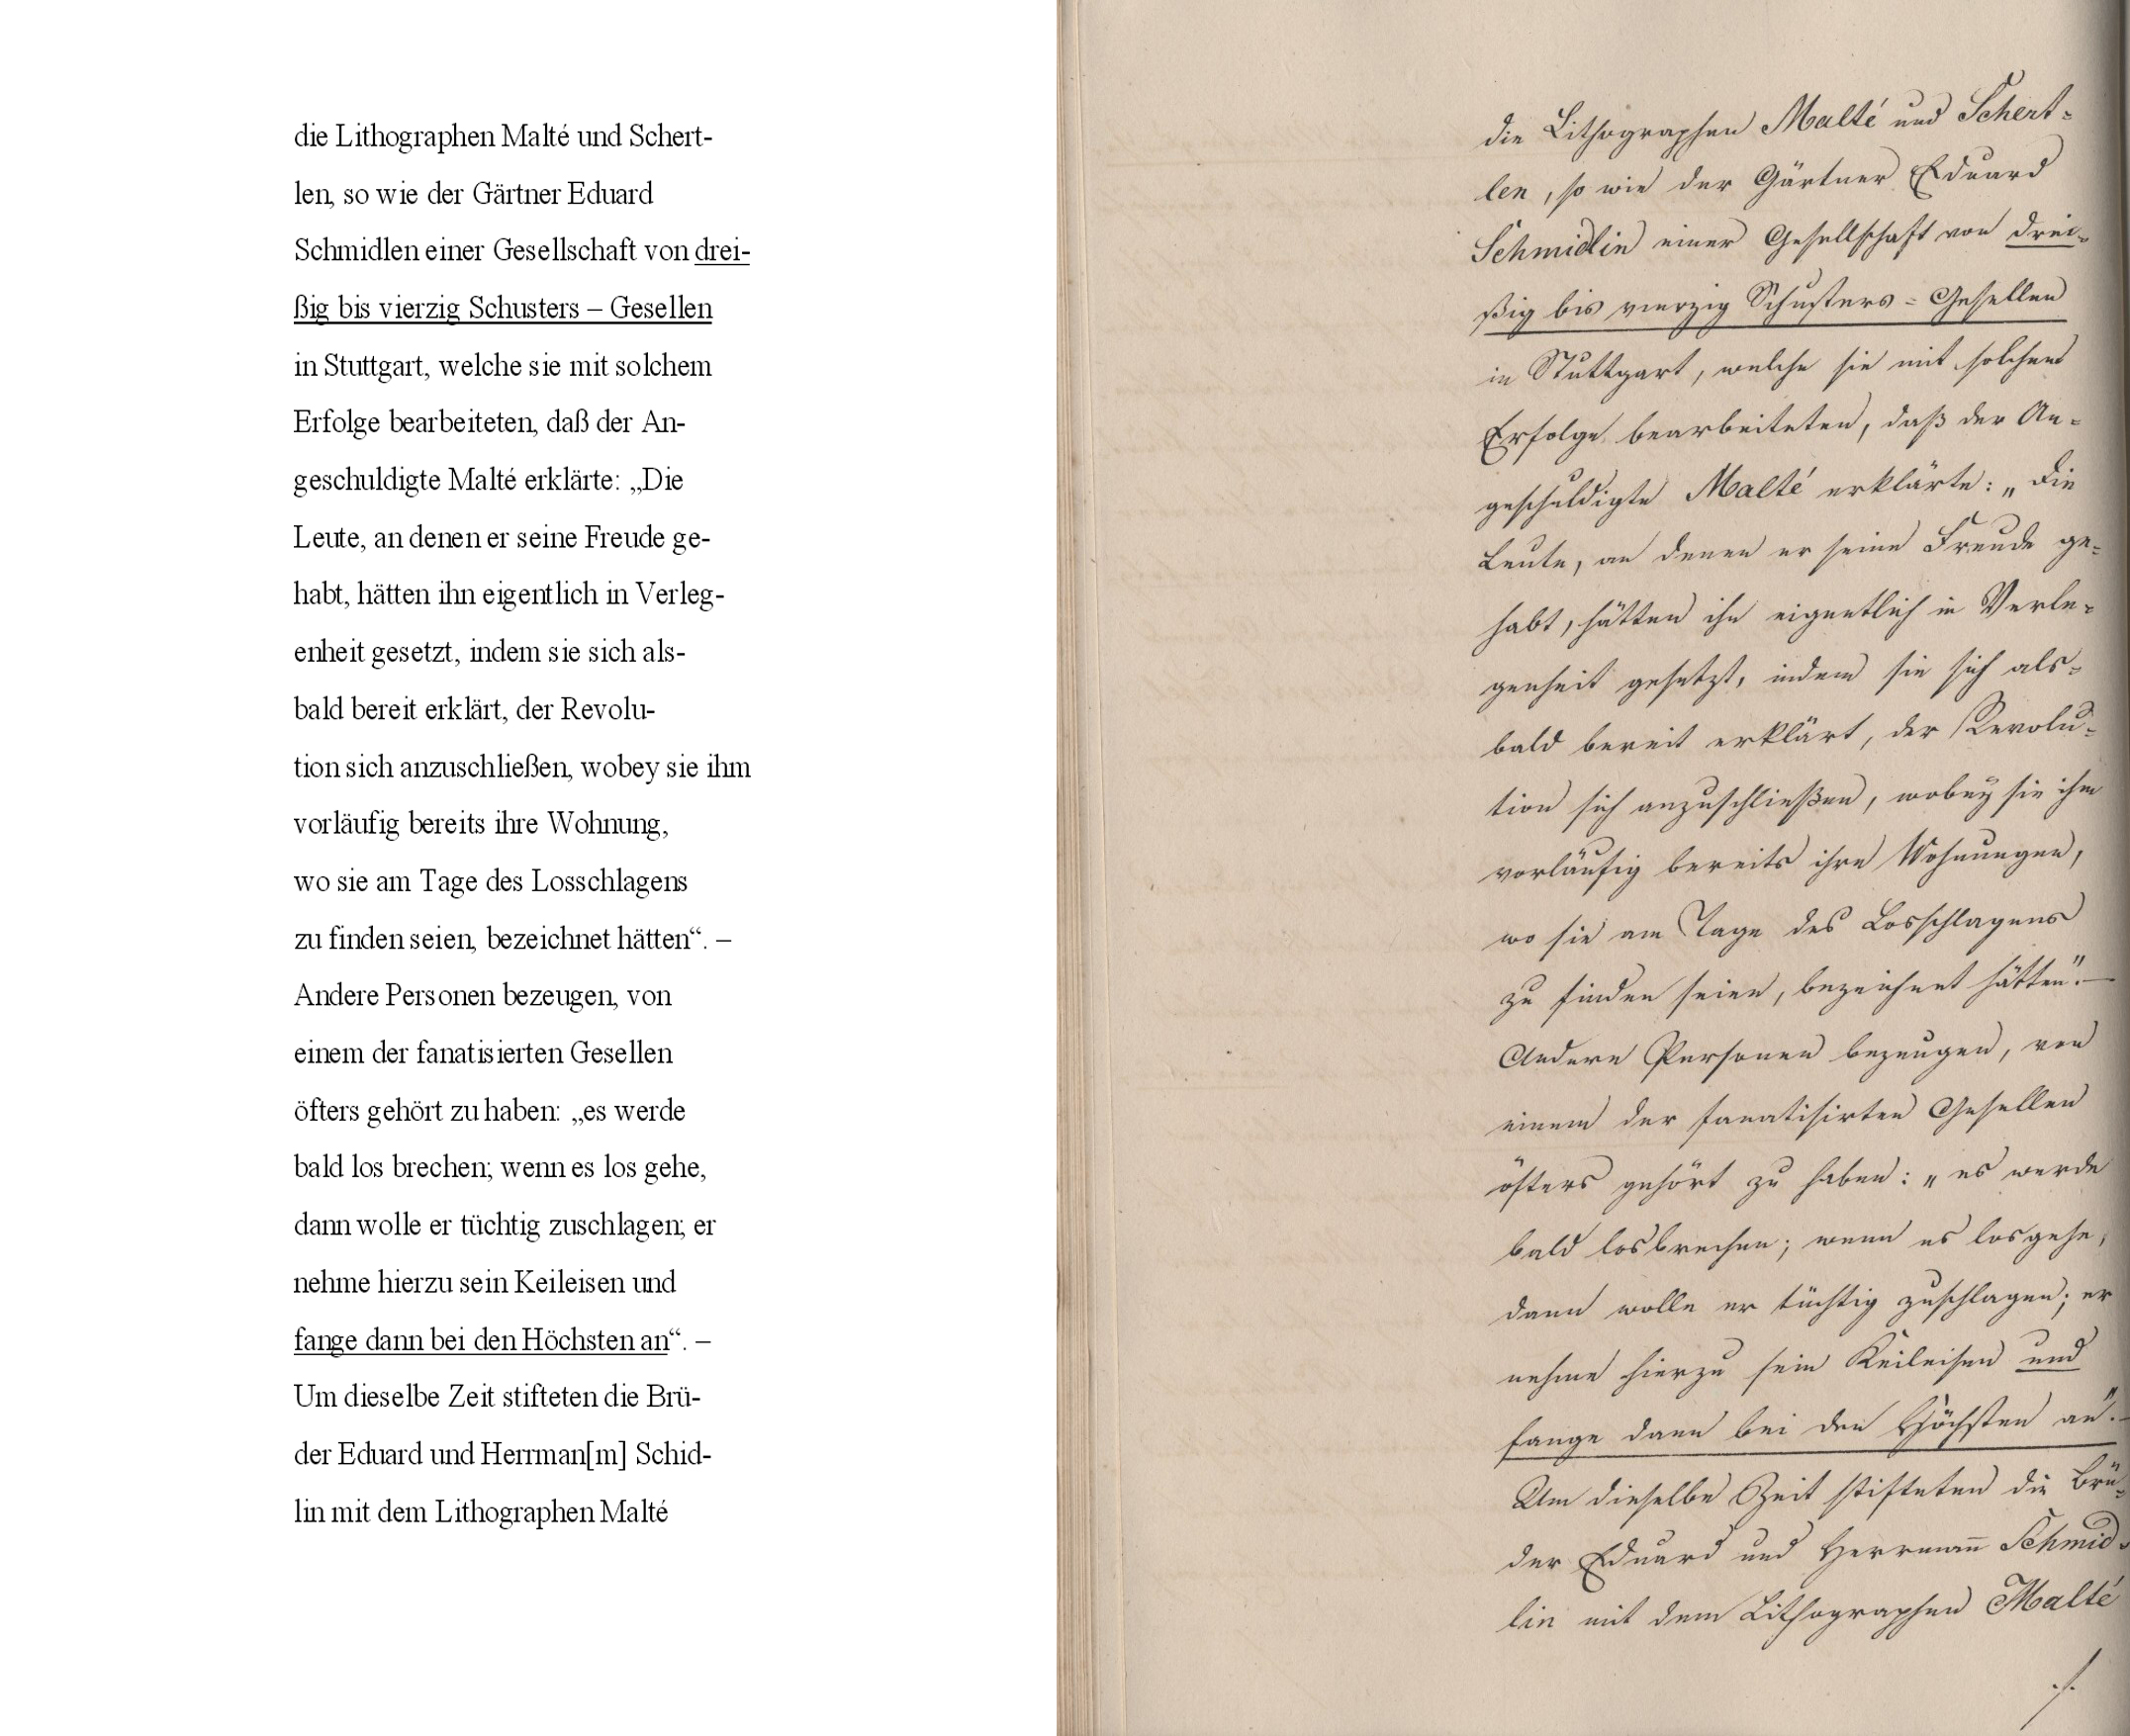 die Lithographen Malté und Schert-
len, so wie der Gärtner Eduard
Schmidlen einer Gesellschaft von drei-
ßig bis vierzig Schusters – Gesellen
in Stuttgart, welche sie mit solchem
Erfolge bearbeiteten, daß der An-
geschuldigte Malté erklärte: „Die
Leute, an denen er seine Freude ge-
habt, hätten ihn eigentlich in Verleg-
enheit gesetzt, indem sie sich als-
bald bereit erklärt, der Revolu-
tion sich anzuschließen, wobey sie ihm
vorläufig bereits ihre Wohnung,
wo sie am Tage des Losschlagens
zu finden seien, bezeichnet hätten“. –
Andere Personen bezeugen, von
einem der fanatisierten Gesellen
öfters gehört zu haben: „es werde
bald los brechen; wenn es los gehe,
dann wolle er tüchtig zuschlagen; er
nehme hierzu sein Keileisen und
fange dann bei den Höchsten an“. –
Um dieselbe Zeit stifteten die Brü-
der Eduard und Herrman[m] Schid-
lin mit dem Lithographen Malté
die Lithographen Malté und Schert-
len, so wie der Gärtner Eduard
Schmidlin einer Gesellschaft von drei-
ßig bis vierzig Schusters = Gesellen
in Stuttgart, welche sie mit solchem
Erfolge bearbeiteten, daß der An-
geschuldigte Malté erklärte: „Die
Leute, an denen er seine Freude ge-
habt, hätten ihn eigentlich in Verle-
genheit gesetzt, indem sie sich als-
bald bereit erklärt, der Revolu-
tion sich anzuschließen, wobey sie ihm
vorläufig bereits ihre Wohnungen,
wo sie am Tage des Losschlagens
zu finden seien, bezeichnet hätten“. –
Andere Personen bezeugen, von
einem der fanatisirten Gesellen
öfters gehört zu haben: „es werde
bald losbrechen; wenn es losgehe,
dann wolle er tüchtig zuschlagen; er
nehme hierzu sein Keileisen und
fange dann bei den Höchsten an“. –
Um dieselbe Zeit stifteten die Brü-
der Eduard und Herrman̅ Schmid-
lin mit dem Lithographen Malté
./.